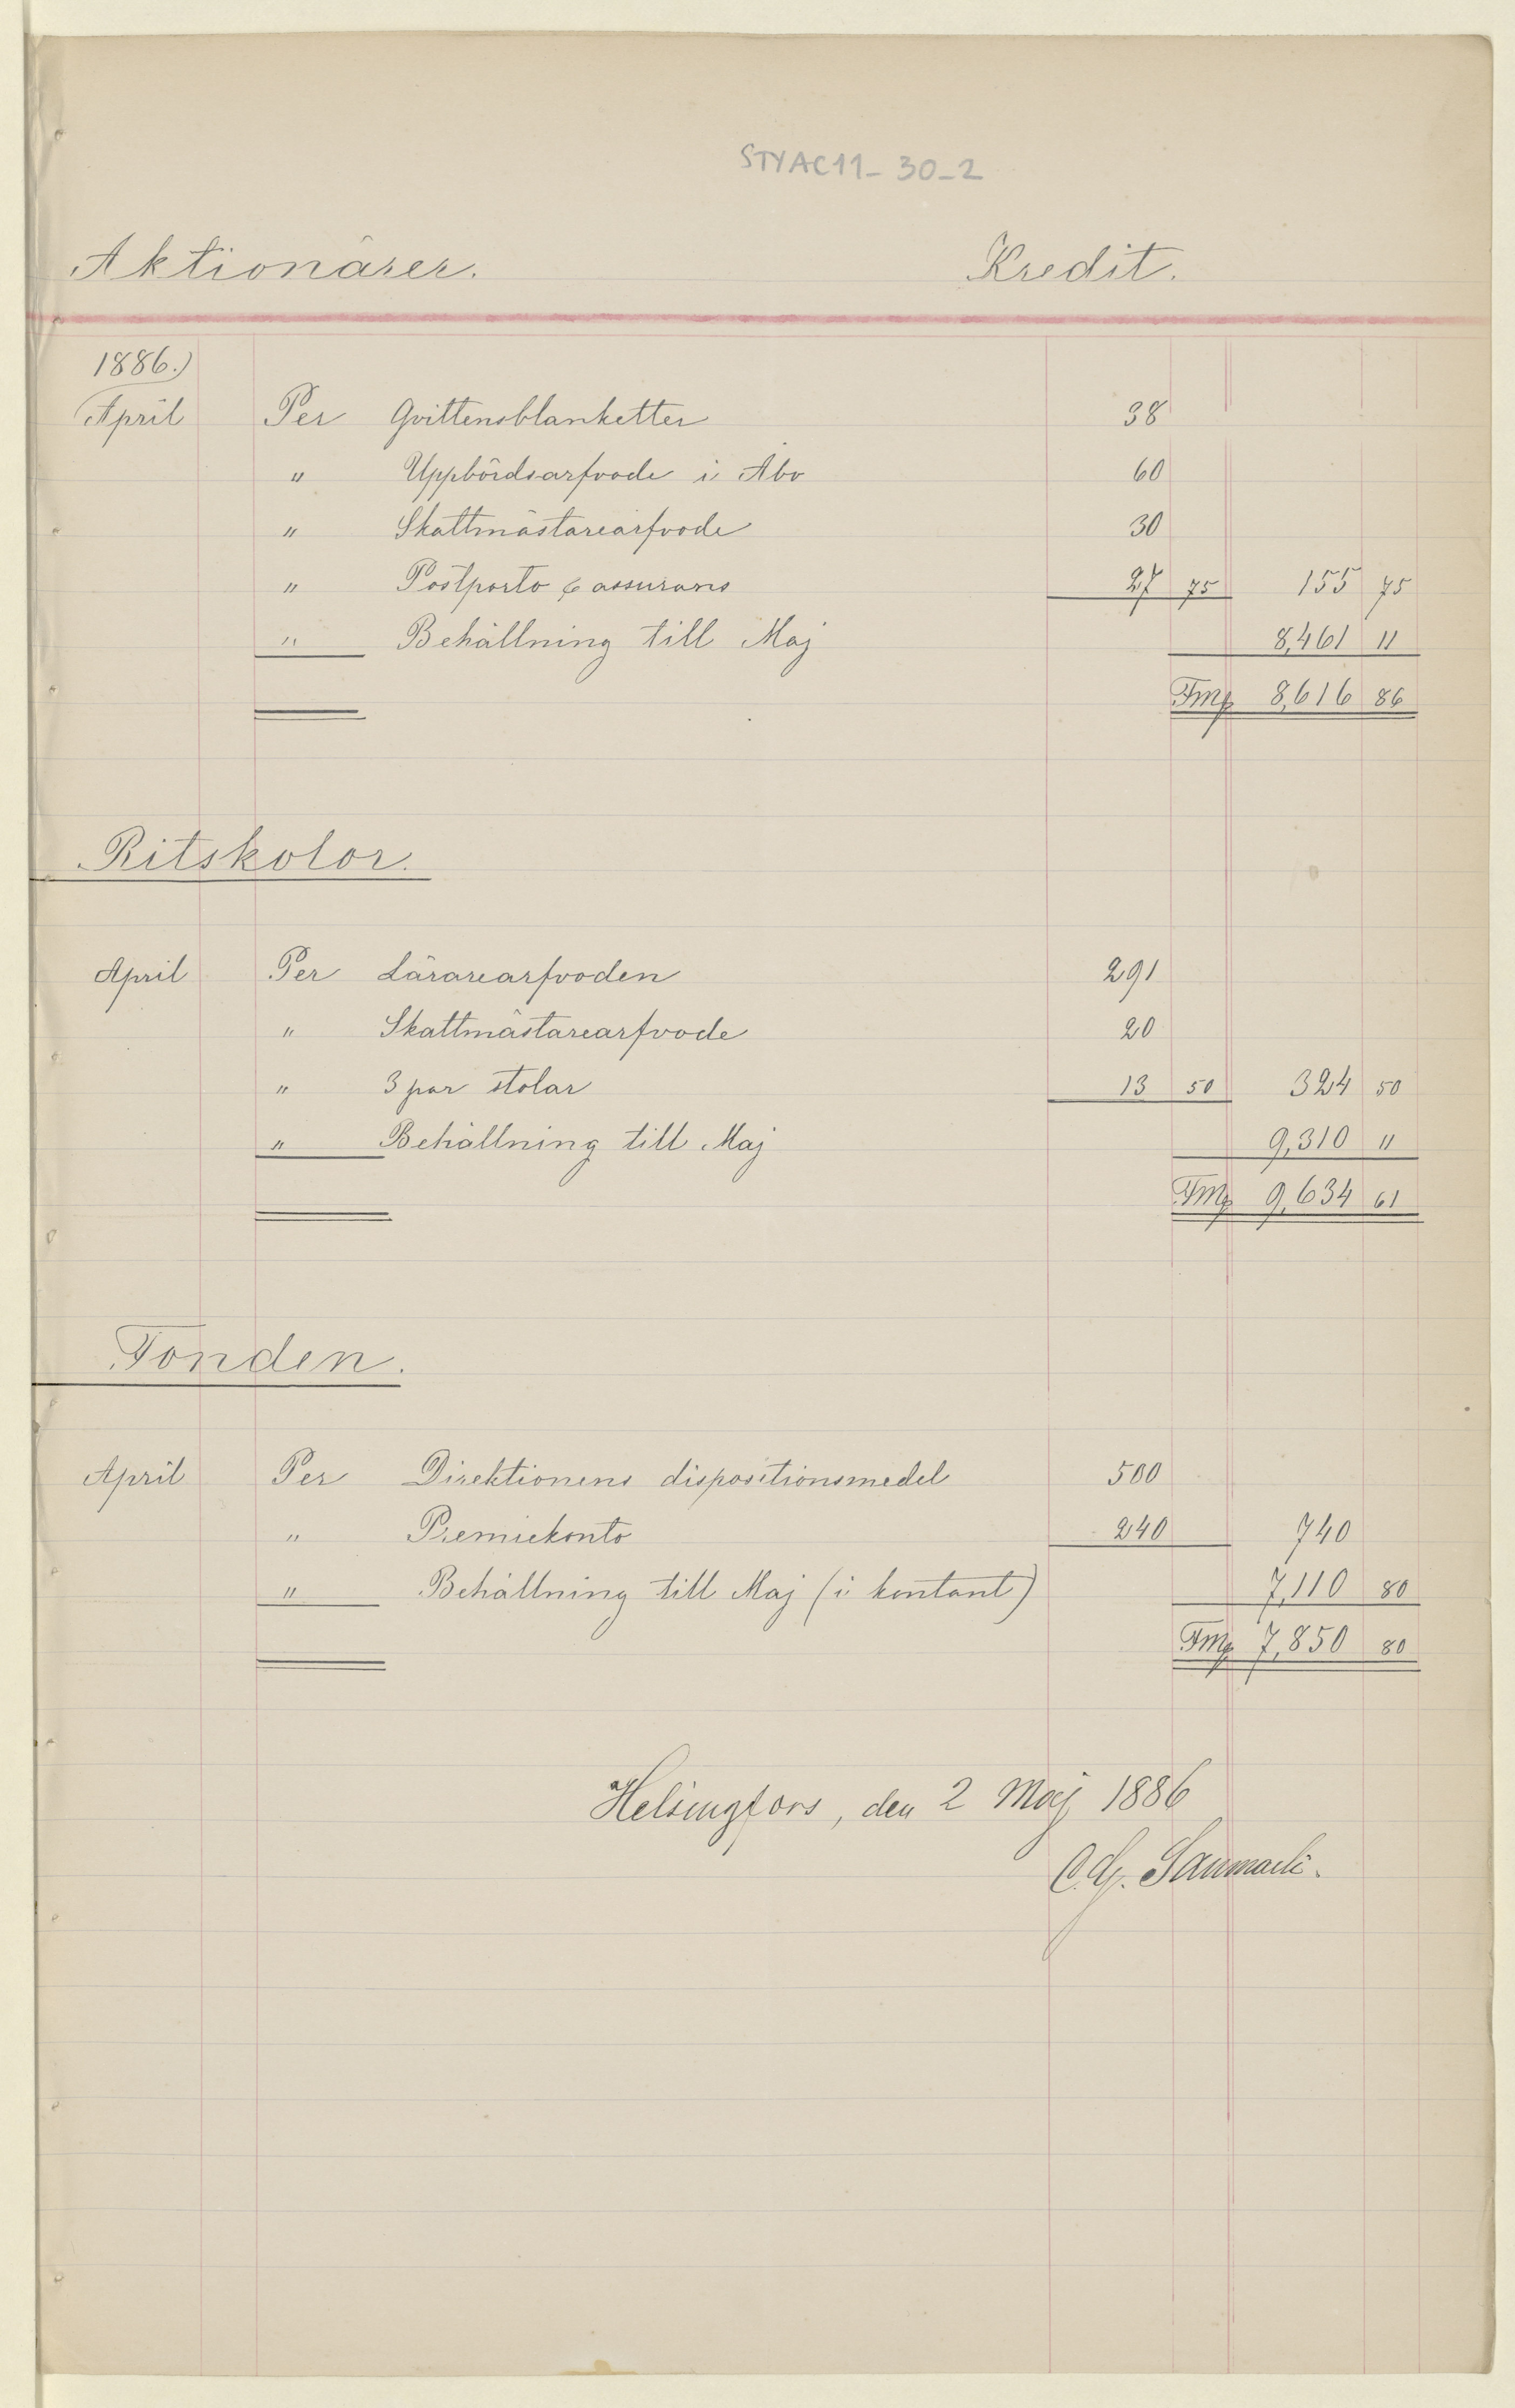 STYAC11_30_2
Aktionärer. Kredit.
1886.)
April Per Qvittensblanketter 38
" Uppbördsarfvode i Åbo 60
" Skattmästarearfvode 30
" Postporto & assurans 27 75 155 75
" Behållning till Maj 8,461 11
Fmg 8,616 86
Ritskolor.
April Per Lärarearfvoden 291
" Skattmästarearfvode 20
" 3 par stolar 13 50 324 50
" Behållning till Maj 9,310 11
Fmg 9,634 61
Fonden.
April Per Direktionens dispositionsmedel 500
" Premiekonto 240 740
" Behållning till Maj (i kontant) 7,110 80
Fmg 7,850 80
Helsingfors, den 2 Maj 1886
C. G. Sanmark.